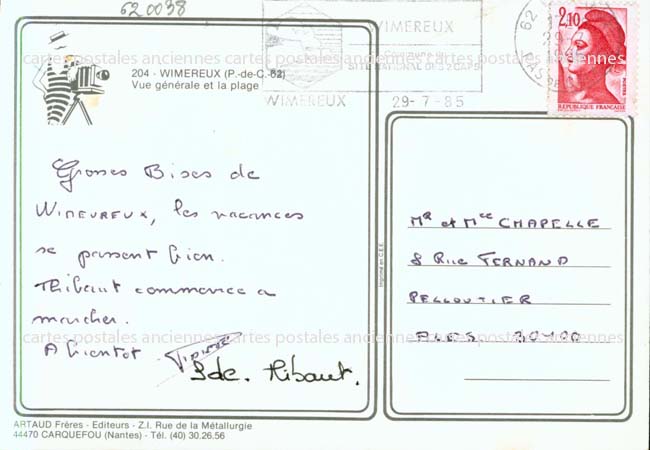 620038
WIMEREUX
WIMEREUX 29-7-85
62
PAS DE
2,10
REPUBLIQUE FRANÇAISE
cartes postales anciennes cartes postales anciennes cartes postales anciennes
204 - WIMEREUX (P.-de-C.-62)
Vue générale et la plage
Grosses Bises de
WIMEUREUX, les vacances
se passent bien.
Thibaut commence a
marcher.
A bientot.
Thibaut.
Imprimé en C.E.E.
Mr et Mme CHAPELLE
8 Rue FERNAND
PELLOUTIER
ALES 30100
cartes postales anciennes cartes postales anciennes cartes postales anciennes
ARTAUD Frères - Editeurs - Z.I. Rue de la Métallurgie
44470 CARQUEFOU (Nantes) - Tél. (40) 30.26.56